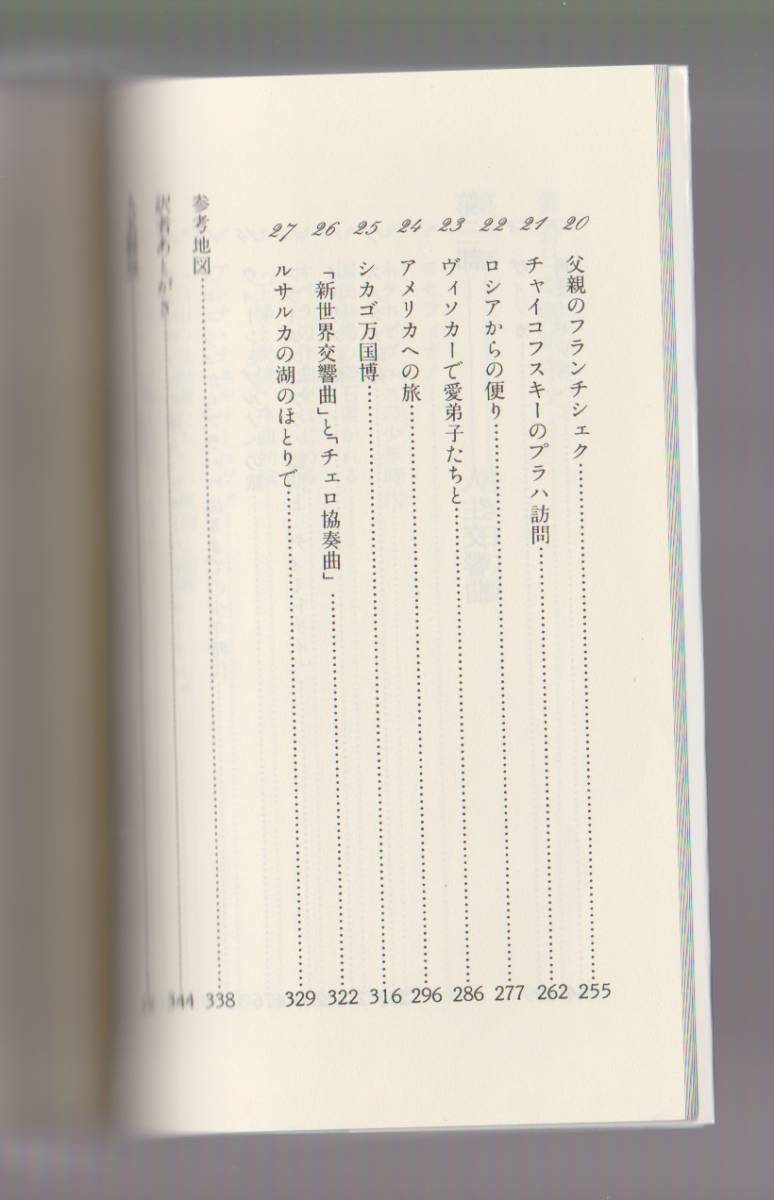 20 父親のフランチシェク……255
21 チャイコフスキーのプラハ訪問……262
22 ロシアからの便り……277
23 ヴィソカーで愛弟子たちと……286
24 アメリカへの旅……296
25 シカゴ万国博……316
26 「新世界交響曲」と「チェロ協奏曲」……322
27 ルサルカの湖のほとりで……329
参考地図……338
訳者あとがき……344